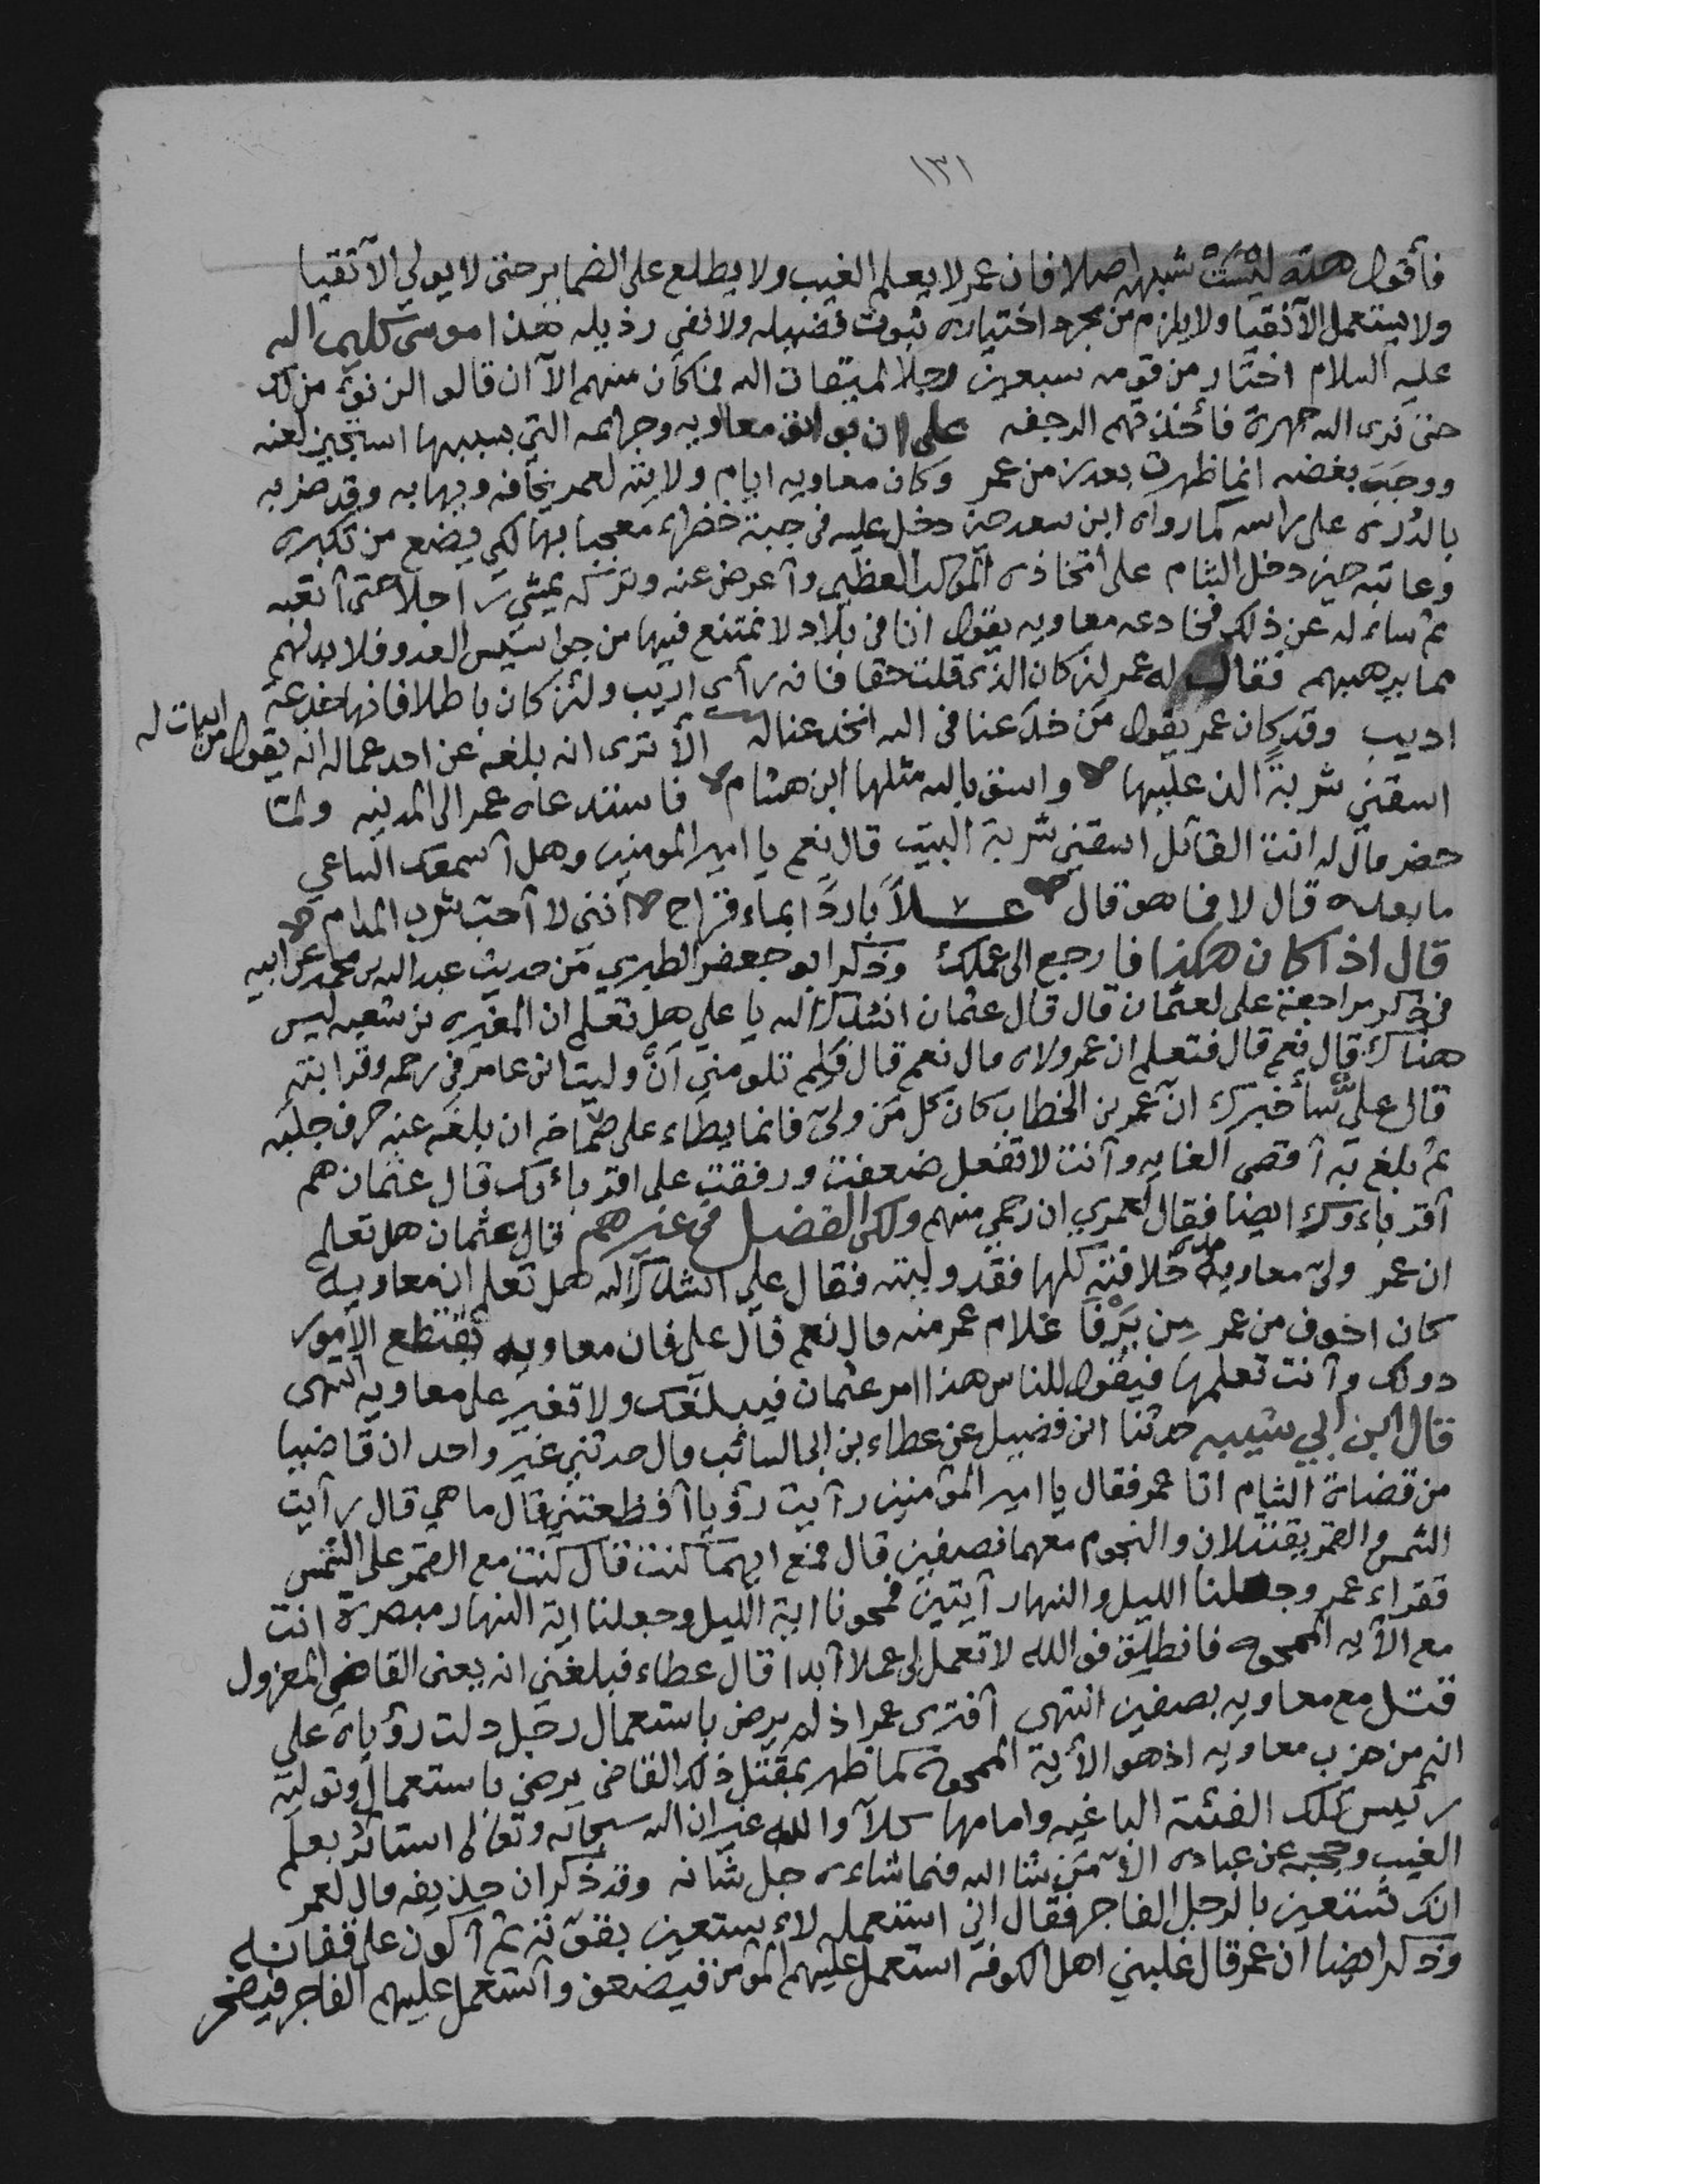 ١٣١
فأقول هذه ليست شبهه اصلا فان عمر لا يعلم الغيب ولا يطلع على الضماير حتى لا يولي الا تقيا
ولا يستعمل الا نقيا ولا يلزم من مجرد اختياره ثبوت فضيله ولا نفي رذيله هذا موسى كليم الله
عليه السلام اختار من قومه سبعين رجلا لميقات الله فما كان منهم الا ان قالوا لن نؤمن لك
حتى نرى الله جهرة فأخذتهم الرجفه على ان بوائق معاويه وجرائمه التي بسببها استجيز لعنه
ووجب بغضه انما ظهرت بعد زمن عمر وكان معاويه ايام ولايته لعمر يخافه ويهابه وقد ضربه
بالدره على راسه كما رواه ابن سعد حين دخل عليه في جبة خضراء معجبا بها لكي يضع من تكبره
وعاتبه حين دخل الشام على اتخاذه الموكب العظيم وأعرض عنه وتركه يمشي راجلا حتى أتعبه
ثم سائله عن ذلك فخادعه معاويه بقوله انا في بلاد لا نمتنع فيها من جواسيس العدو فلا بد لهم
مما يرهبهم فقال له عمر لئن كان الذي قلت حقا فانه رأي اريب ولئن كان باطلا فانها خدعة
اديب وقد كان عمر يقول من خدعنا في الله انخدعنا له الا ترى انه بلغه عن احد عماله انه يقول من ابيات له
اسقني شربة الذ عليها واسق بالله مثلها ابن هشام فاستدعاه عمر الى المدينه ولما
حضر قال له انت القائل اسقني شربة البيت قال نعم يا امير المومنين وهل أسمعك الساعي
ما بعده قال لا فما هو قال عسلا باردا بماء قراح انني لا أحب شرب المدام
قال اذا كان هكذا فارجع الى عملك وذكر ابو جعفر الطبري من حديث عبد الله بن محمد عن ابيه
في ذكر مراجعة علي لعثمان قال قال عثمان انشدك الله يا علي هل تعلم ان المغيره بن شعبه ليس
هناك قال نعم قال فتعلم ان عمر ولاه قال نعم قال فلم تلومني أن وليت ابن عامر في رحمه وقرابته
قال علي سأخبرك ان عمر بن الخطاب كان كل من ولى فانما يطاء على صماخه ان بلغه عنه حرف جلبه
ثم بلغ به أقصى الغايه وأنت لا تفعل ضعفت ورفقت على اقربائك قال عثمان هم
أقرباءوك ايضا فقال لعمري ان رحمي منهم ولكن الفضل في غيرهم قال عثمان هل تعلم
ان عمر ولى معاويه مده خلافته كلها فقد وليته فقال علي انشدك الله هل تعلم ان معاويه
كان اخوف من عمر من يرفا غلام عمر منه قال نعم قال علي فان معاويه يقتطع الامور
دونك وأنت تعلمها فيقول للناس هذا امر عثمان فيبلغك ولا تغير على معاويه انتهى
قال ابن ابي شيبه حدثنا ابن فضيل عن عطاء بن ابي السائب قال حدثني غير واحد ان قاضيا
من قضاة الشام اتا عمر فقال يا امير المؤمنين رأيت رؤيا أفظعتني قال ما هي قال رأيت
الشمس والقمر يقتتلان والنجوم معهما نصفين قال فمع ايهما كنت قال كنت مع القمر على الشمس
فقراء عمر وجعلنا الليل والنهار آيتين فمحونا اية الليل وجعلنا اية النهار مبصرة انت
مع الآيه الممحوه فانطلق فوالله لا تعمل لي عملا أبدا قال عطاء فبلغني انه يعني القاضي المعزول
قتل مع معاويه بصفين انتهى أفترى عمر اذ لم يرض باستعمال رجل دلت رؤياه على
انه من حزب معاويه اذ هو الآية الممحوة كما ظهر بمقتل ذلك القاضي يرضى باستعمال وتوليه
رئيس تلك الفئة الباغيه وامامها كلا والله غير ان الله سبحانه وتعالى استاثر بعلم
الغيب وحجبه عن عباده الا من شا الله فيما شاءه جل شانه وقد ذكر ان حذيفه قال لعمر
انك تستعين بالرجل الفاجر فقال اني استعمله لاءستعين بقوته ثم أكون على قفانه
وذكر ايضا ان عمر قال غلبني اهل الكوفه استعمل عليهم المؤمن فيضعف وأستعمل عليهم الفاجر فيفجر